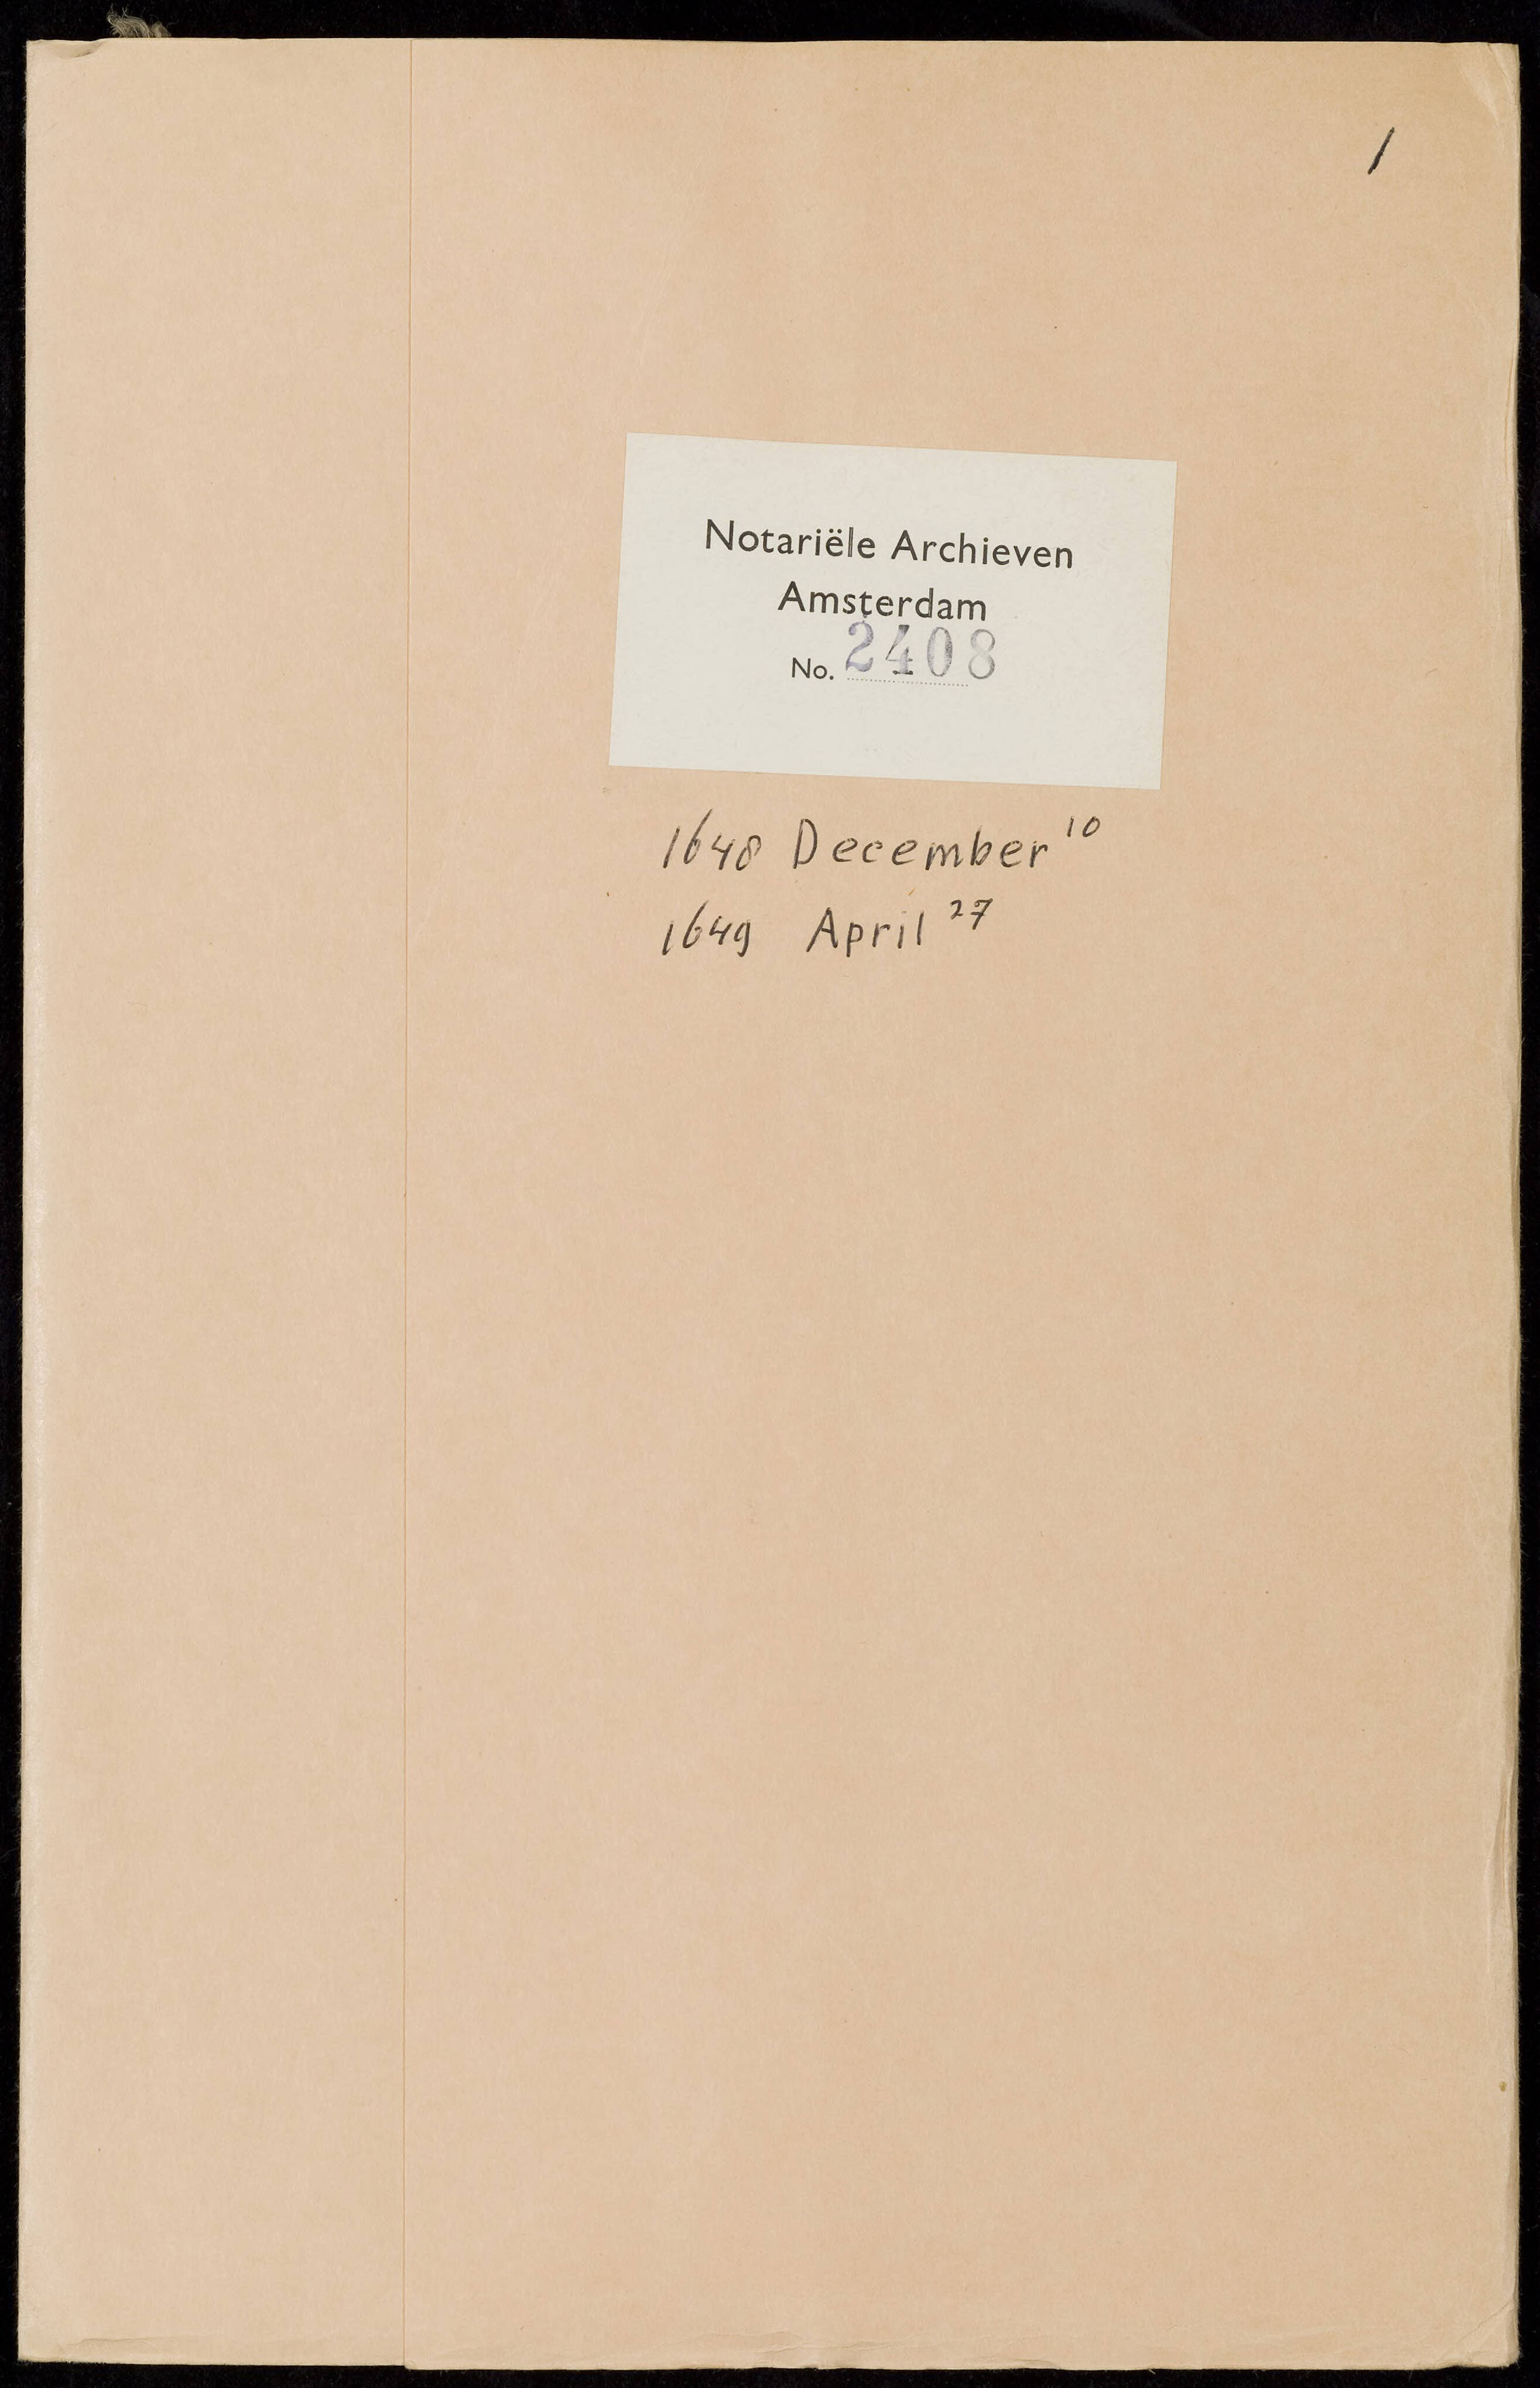 1
Notariële Archieven
Amsterdam
No. 2408
1648 December 10
1649 April 27